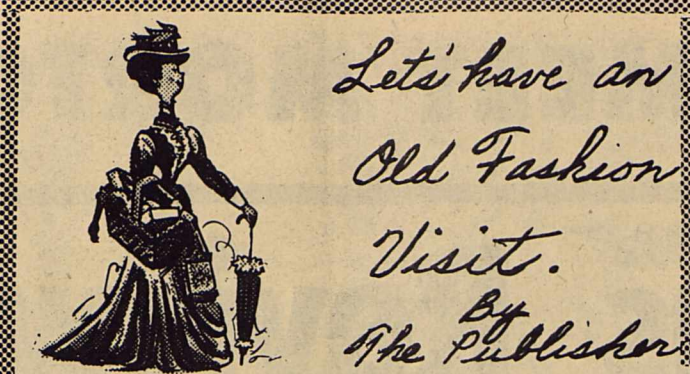 Lets' have an
Old Fashion
Visit.
By
The Publisher